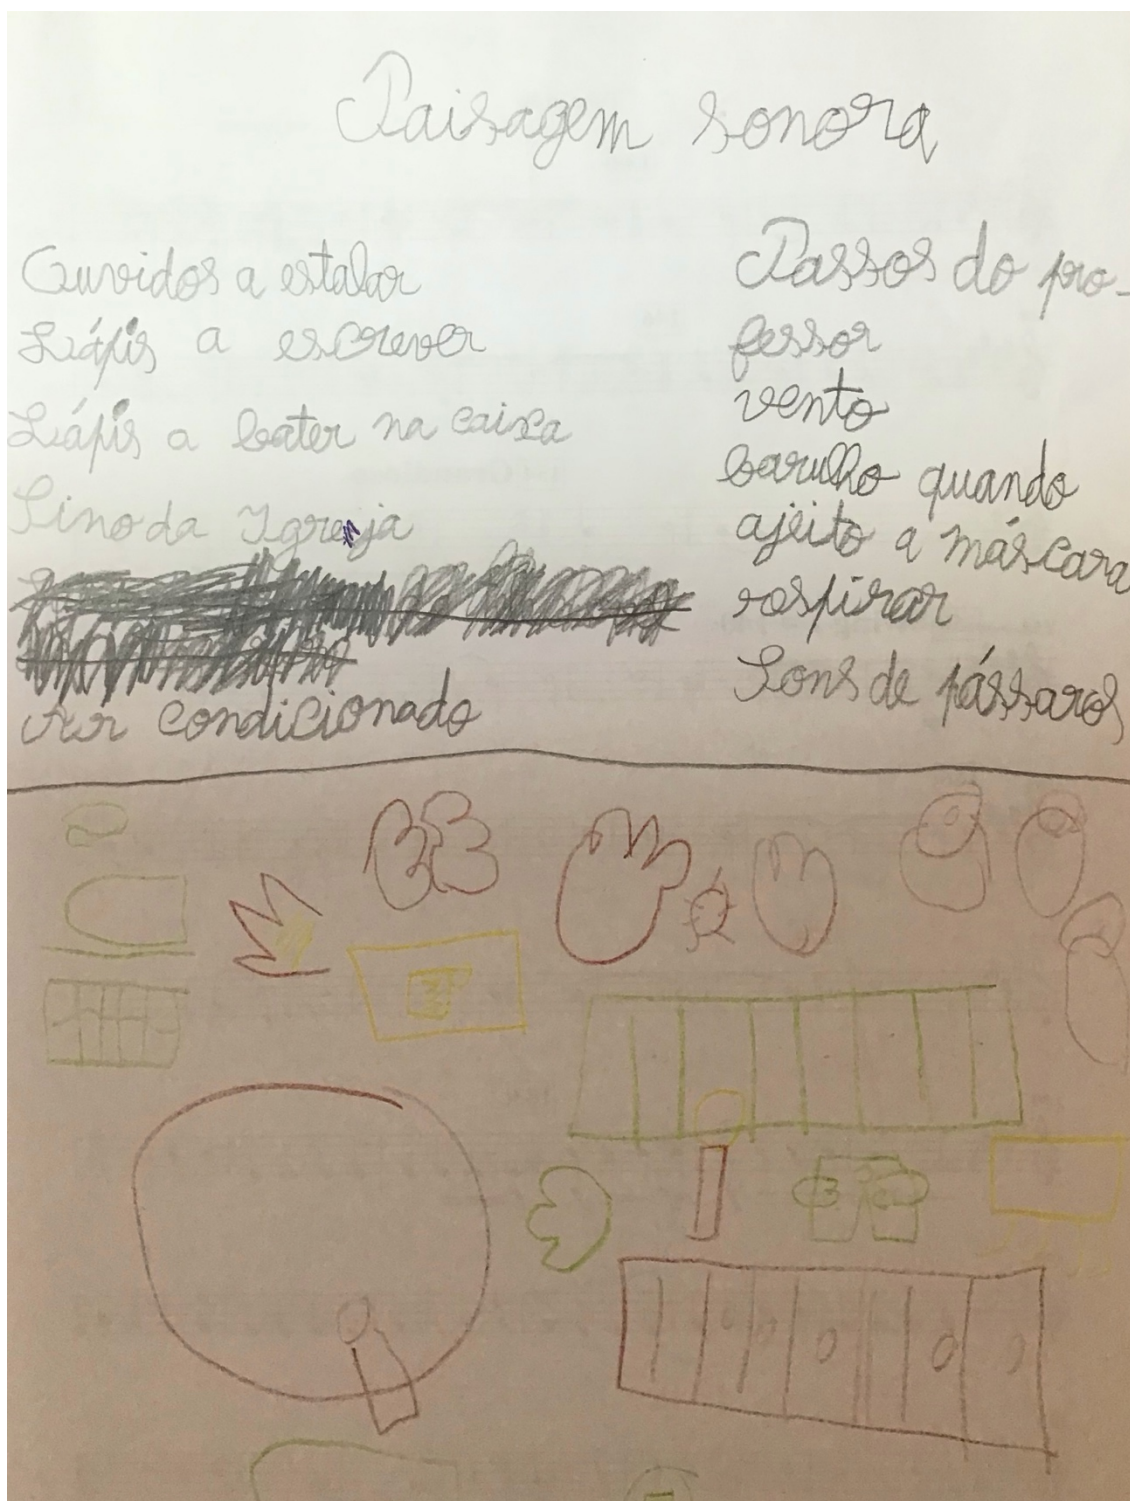 Paisagem sonora
Ouvidos a estalar
Lápis a escrever
Lápis a bater na caixa
Sino da Igreja
Ar condicionado
Passos do pro-
fessor
vento
barulho quando
ajeito a máscara
respirar
Sons de pássaros